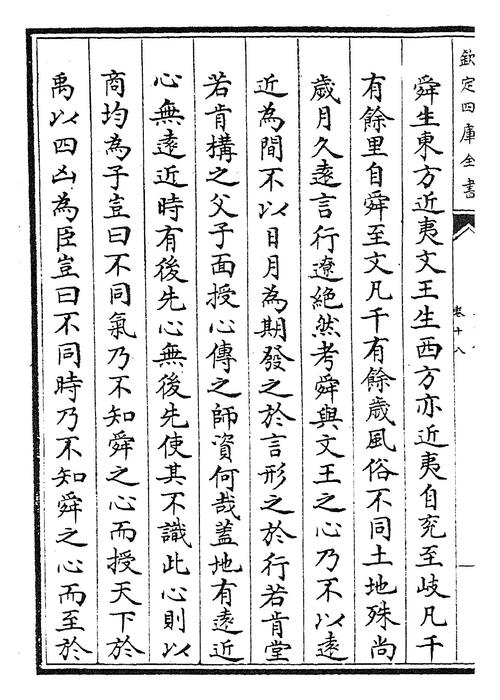 欽定四庫全書
卷十八
舜生東方近夷文王生西方亦近夷自兖至岐凡千
有餘里自舜至文凡千有餘歲風俗不同土地殊尚
歲月久遠言行遼絶然考舜與文王之心乃不以遠
近為間不以日月為期發之於言形之於行若肯堂
若肯搆之父子面授心傳之師資何哉蓋地有遠近
心無遠近時有後先心無後先使其不識此心則以
商均為子豈曰不同氣乃不知舜之心而授天下於
禹以四凶為臣豈曰不同時乃不知舜之心而至於